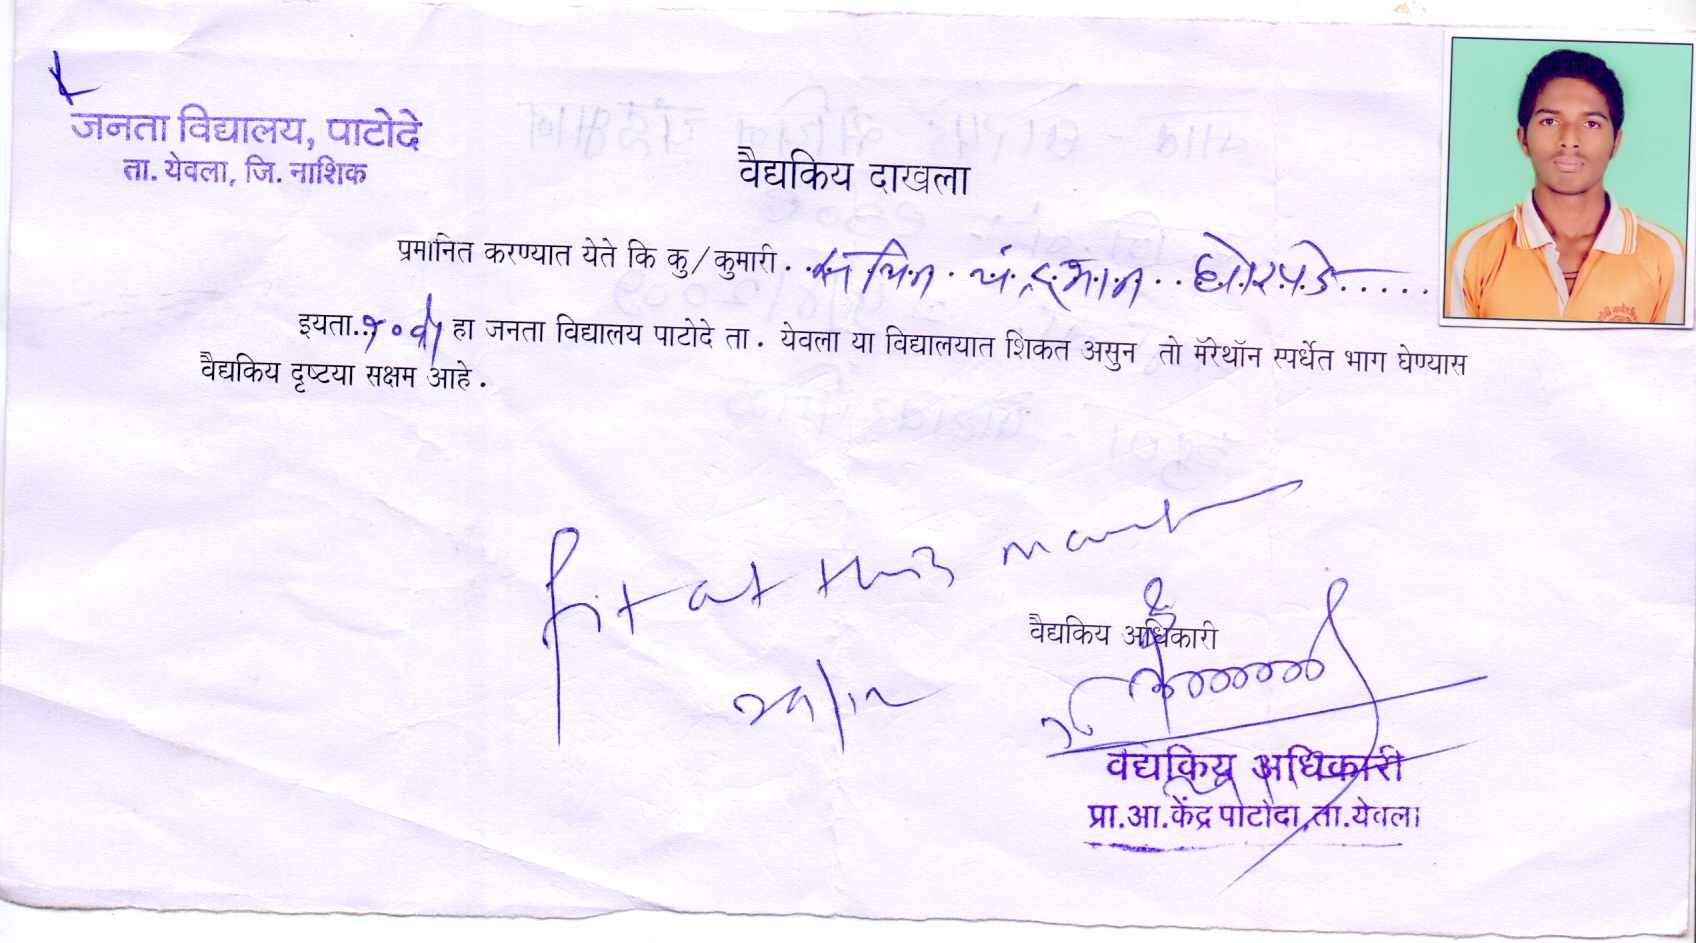 जनता विद्यालय, पाटोदे
ता. येवला, जि. नाशिक
वैद्यकिय दाखला
प्रमानित करण्यात येते कि कु/कुमारी. . सचिन . चंद्रभान . . घोरपडे . . . . . .
इयता. . १० वी हा जनता विद्यालय पाटोदे ता . येवला या विद्यालयात शिकत असुन तो मॅरेथॉन स्पर्धेत भाग घेण्यास
वैद्यकिय दृष्टया सक्षम आहे .
fit at this
वैद्यकिय अधिकारी
वैद्यकिय अधिकारी
प्रा.आ.केंद्र पाटोदा, ता.येवला